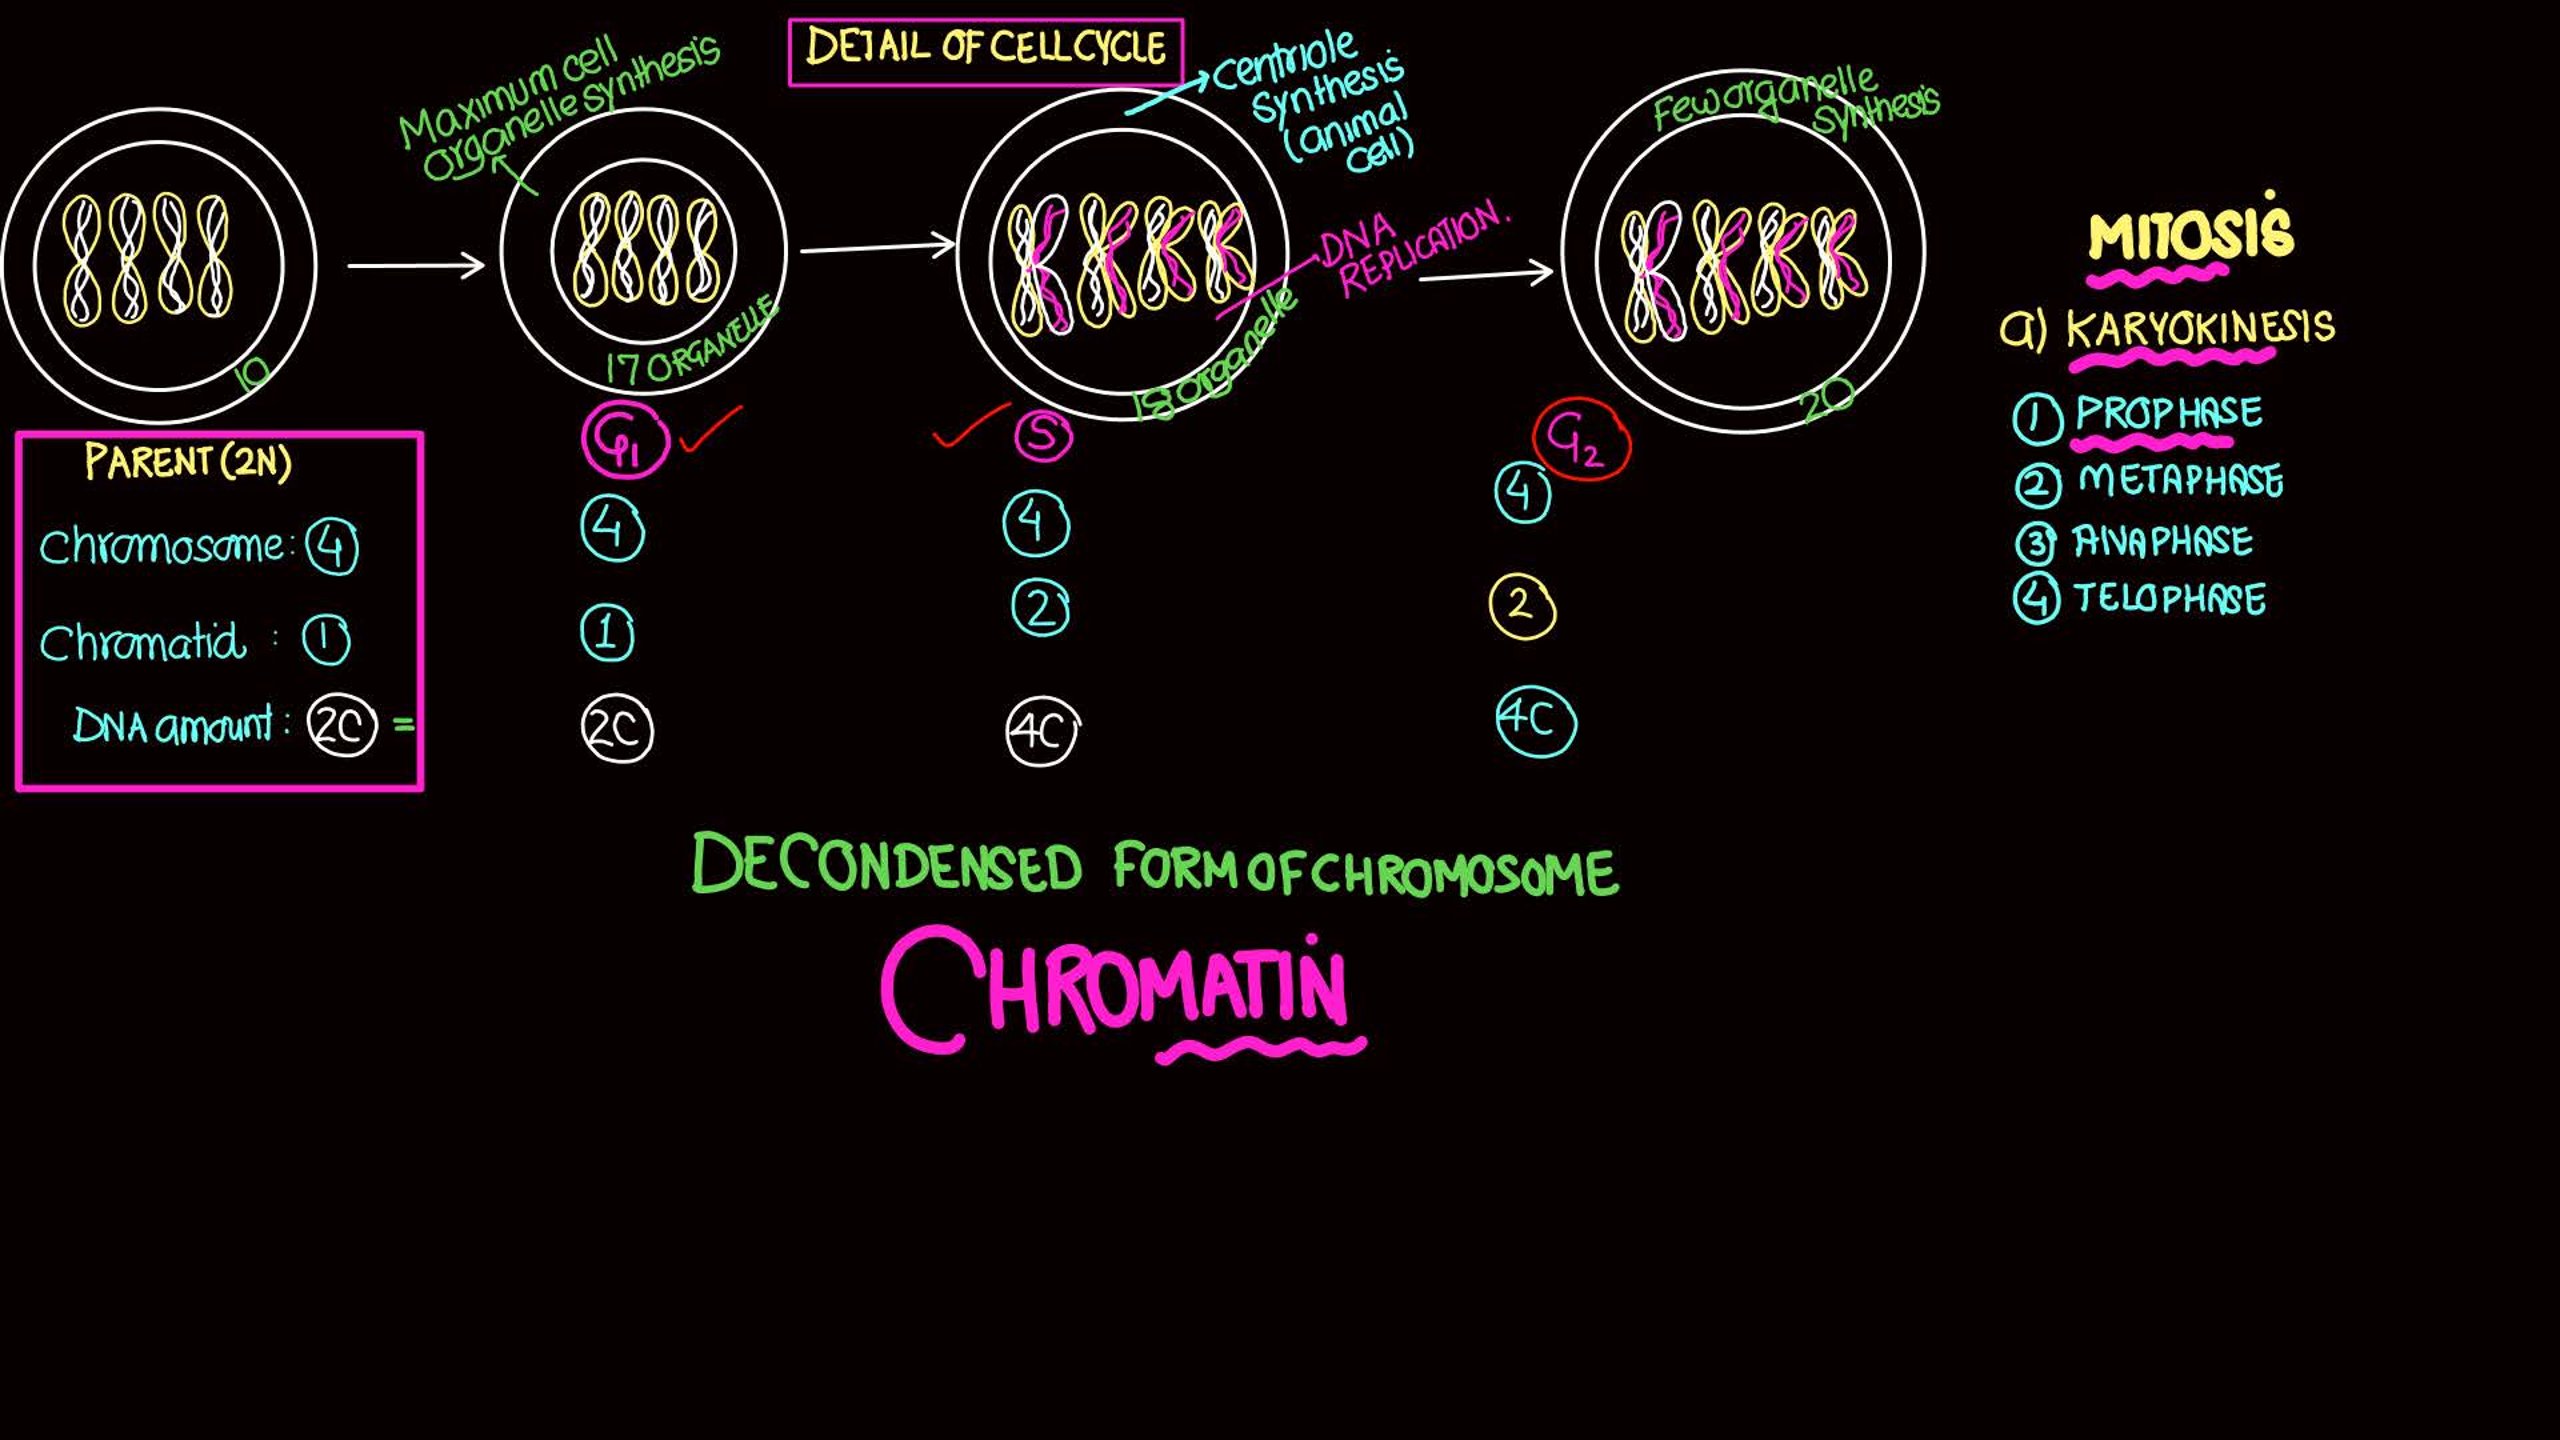 DETAIL OF CELL CYCLE
Maximum cell
organelle synthesis
centriole
synthesis
(animal
cell)
Few organelle
synthesis
DNA
REPLICATION.
10
17 ORGANELLE
18 organelle
20
PARENT (2N)
Chromosome: 4
Chromatid : 1
DNA amount: 2C =
G1
4
1
2C
S
4
2
4C
G2
4
2
4C
MITOSIS
a) KARYOKINESIS
1 PROPHASE
2 METAPHASE
3 ANAPHASE
4 TELOPHASE
DECONDENSED FORM OF CHROMOSOME
CHROMATIN